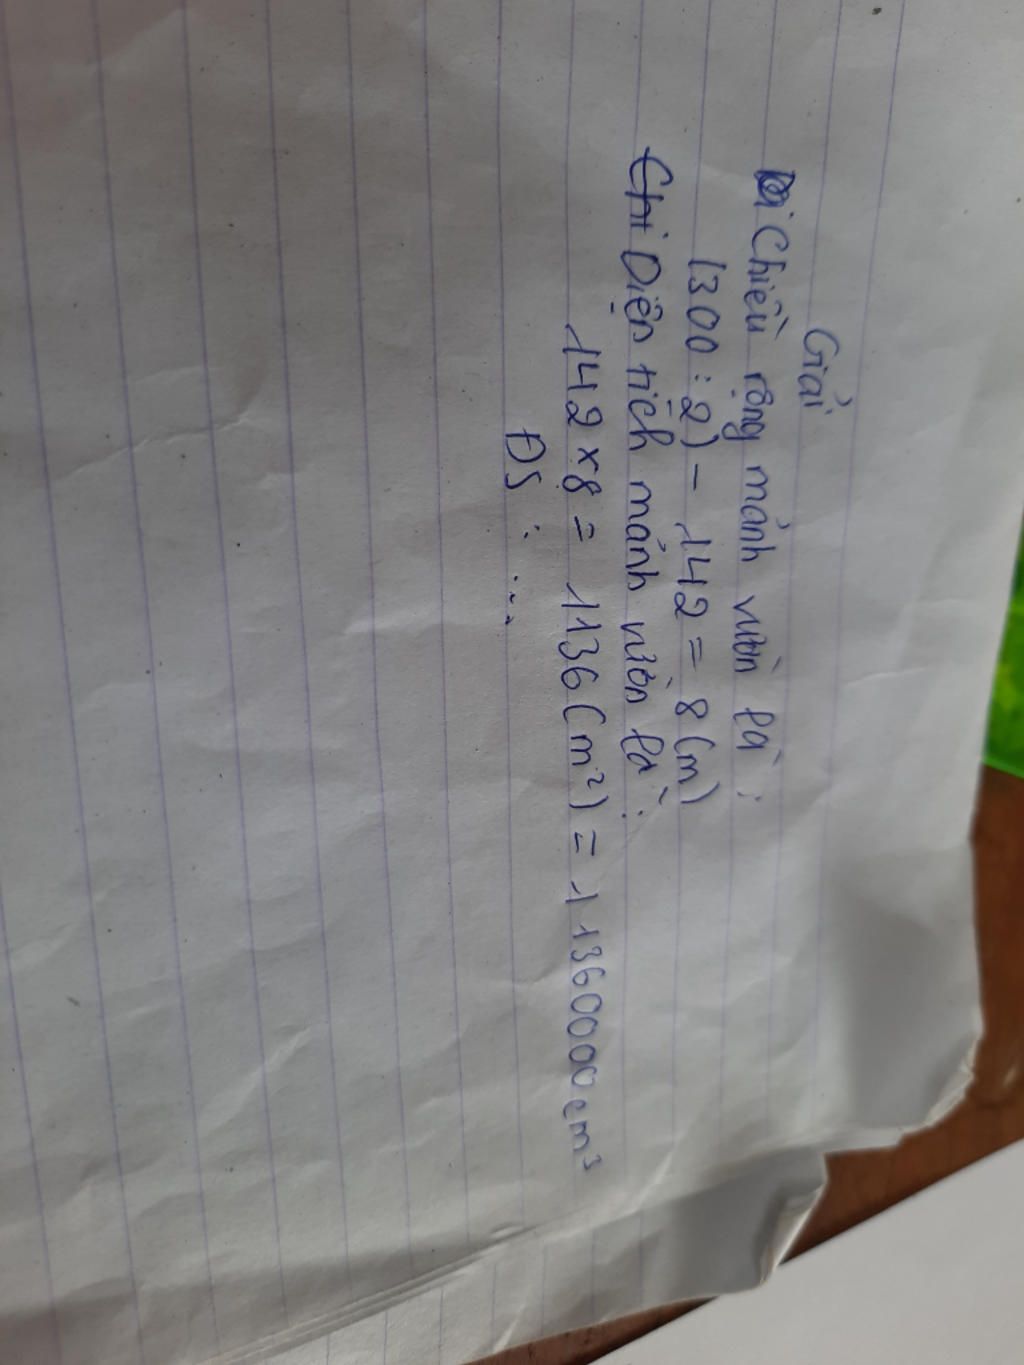 Giải
Chiều rộng mảnh vườn là :
(300 : 2) - 142 = 8 (m)
Diện tích mảnh vườn là :
142 x 8 = 1136 (m²) = 11360000 cm³
ĐS : ...